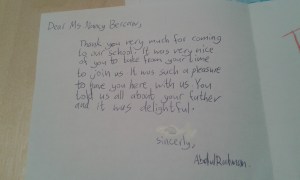 Dear Ms. Nancy Bercaw,
Thank you very much for coming
to our school. It was very nice
of you to take from your time
to join us. It was such a pleasure
to have you here with us. You
told us all about your futher
and it was delightful.
sincerely,
AbdulRahman